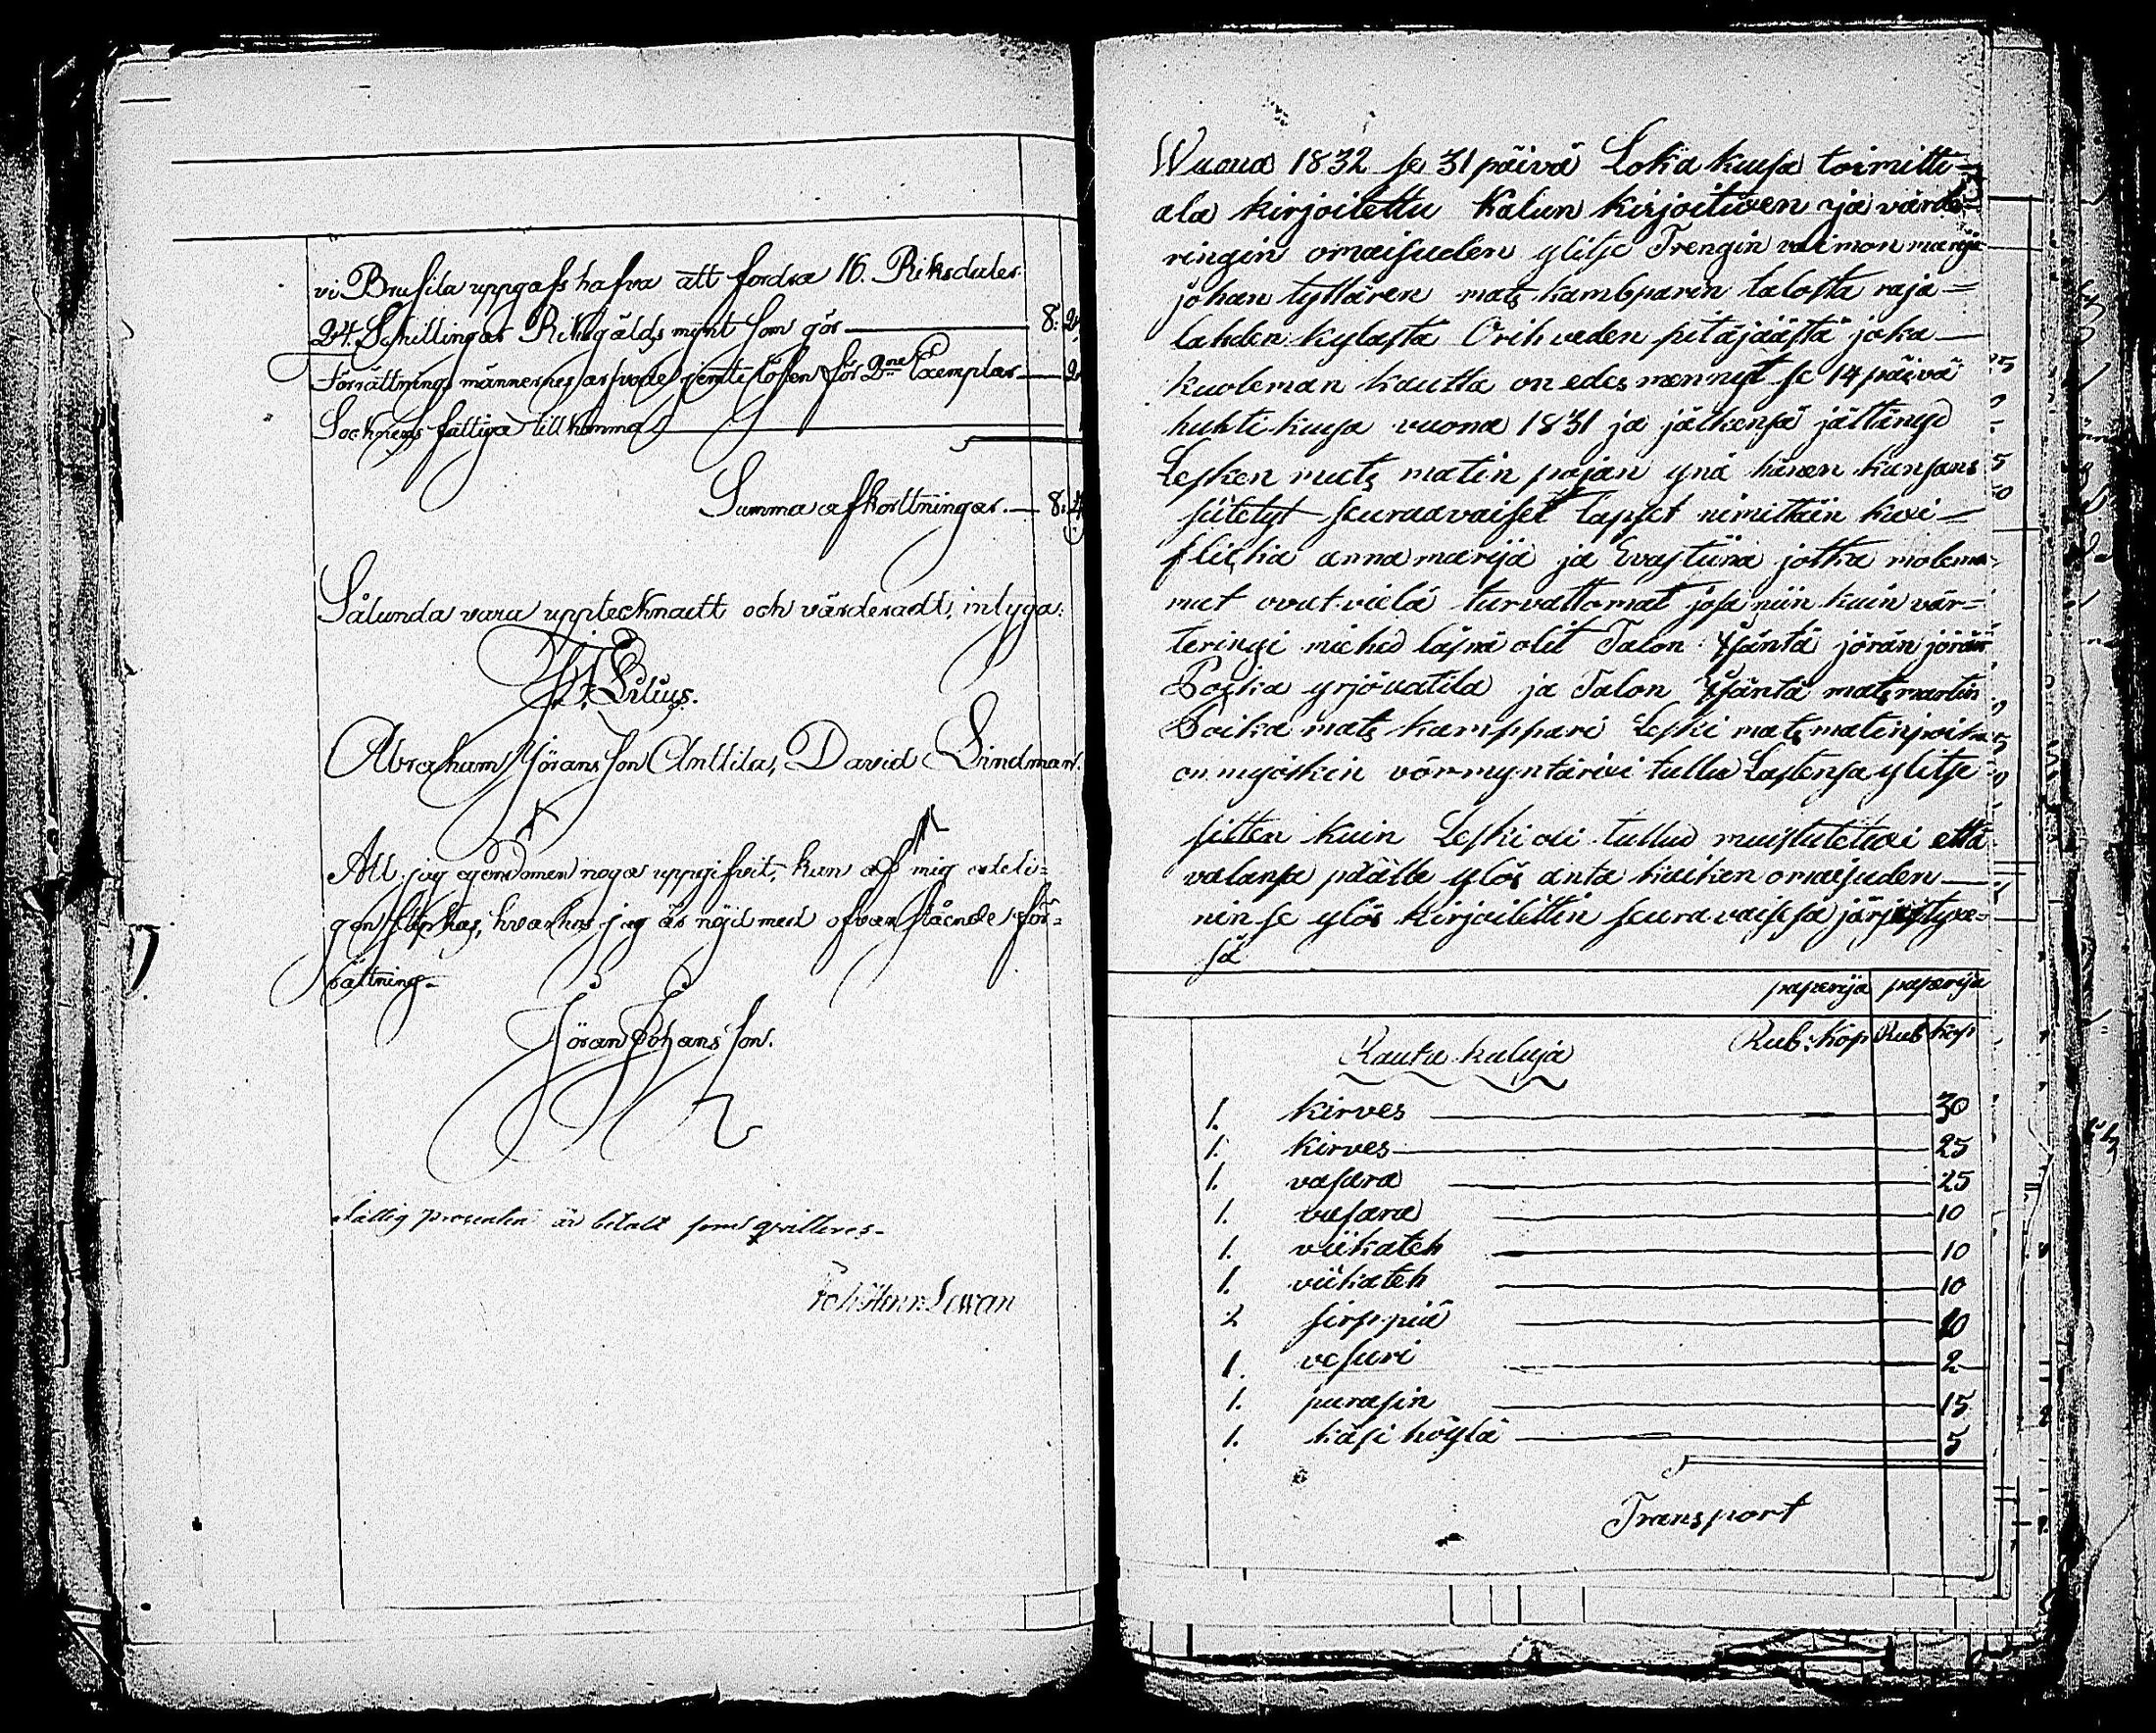 vi Brusila uppgafs hafva att fordra 16. Riksdaler
24. Schillingar Riksgälds mynt som gör 8: 2
Förrättnings männernes arfvode jemte lösen för 2ne Exemplar 2
Socknens fattiga tillkomma
Summa afkorttningar. 8: 4
Sålunda vara upptecknadt och värderadt, intyga:
Silius.
Abraham Jöransson Anttila, David Lindman.
Att jag egendomen noga uppgifvit, kan af mig edeli-
gen hvarhos jag är nöjd med ofvanstående för-
rättning-
Jöran Johansson.
fattig procenten är betalt som qvitteres-
Wuona 1832 se 31 päivä Loka kuusa toimitti
ala kirjoitettu Kalun kirjoituxen ja värde-
ringin omaisuden ylitse Trengin vaimon marija
johan tyttären mats kambparin talosta raja-
lahden kylästä Orihveden pitäjäästä joka
kuoleman kautta on edes mennyt se 14 päivä
huhti kuusa vuona 1831 ja jälkensä jättänyd
Lesken mats matin pojan ynä hänen kansans
siitetyt seuraavaiset lapset nimittäin kaxi
flicka anna marija ja Evastiina jotka molem-
mat ovat vielä turvattomat josa niin kuin vär-
teringi miehed läsnä olit Talon Isäntä jörän jörän
Poika yrjövatila ja Talon Isäntä mats martin
Poika mats kamppari Leski mats matinpoika
on myöskin vörmyntärixi tullu Lastensa ylitse
sitten kuin Leski oli tullud muistutetuxi että
valansa päälle ylös anta kaiken omaisuden
nin se ylös kirjoitettin seuravaisesa järjestyxe-
sä
paperija paperija
Rauta kaluja Rub: kop Rub kop
1. kirves 30
1. kirves 25
1. vasara 25
1. vasara 10
1. viikateh 10
1. viikateh 10
2 sirppiä 10
1. vesuri 2
1. purasin 15
1. käsi höylä 5
Transport